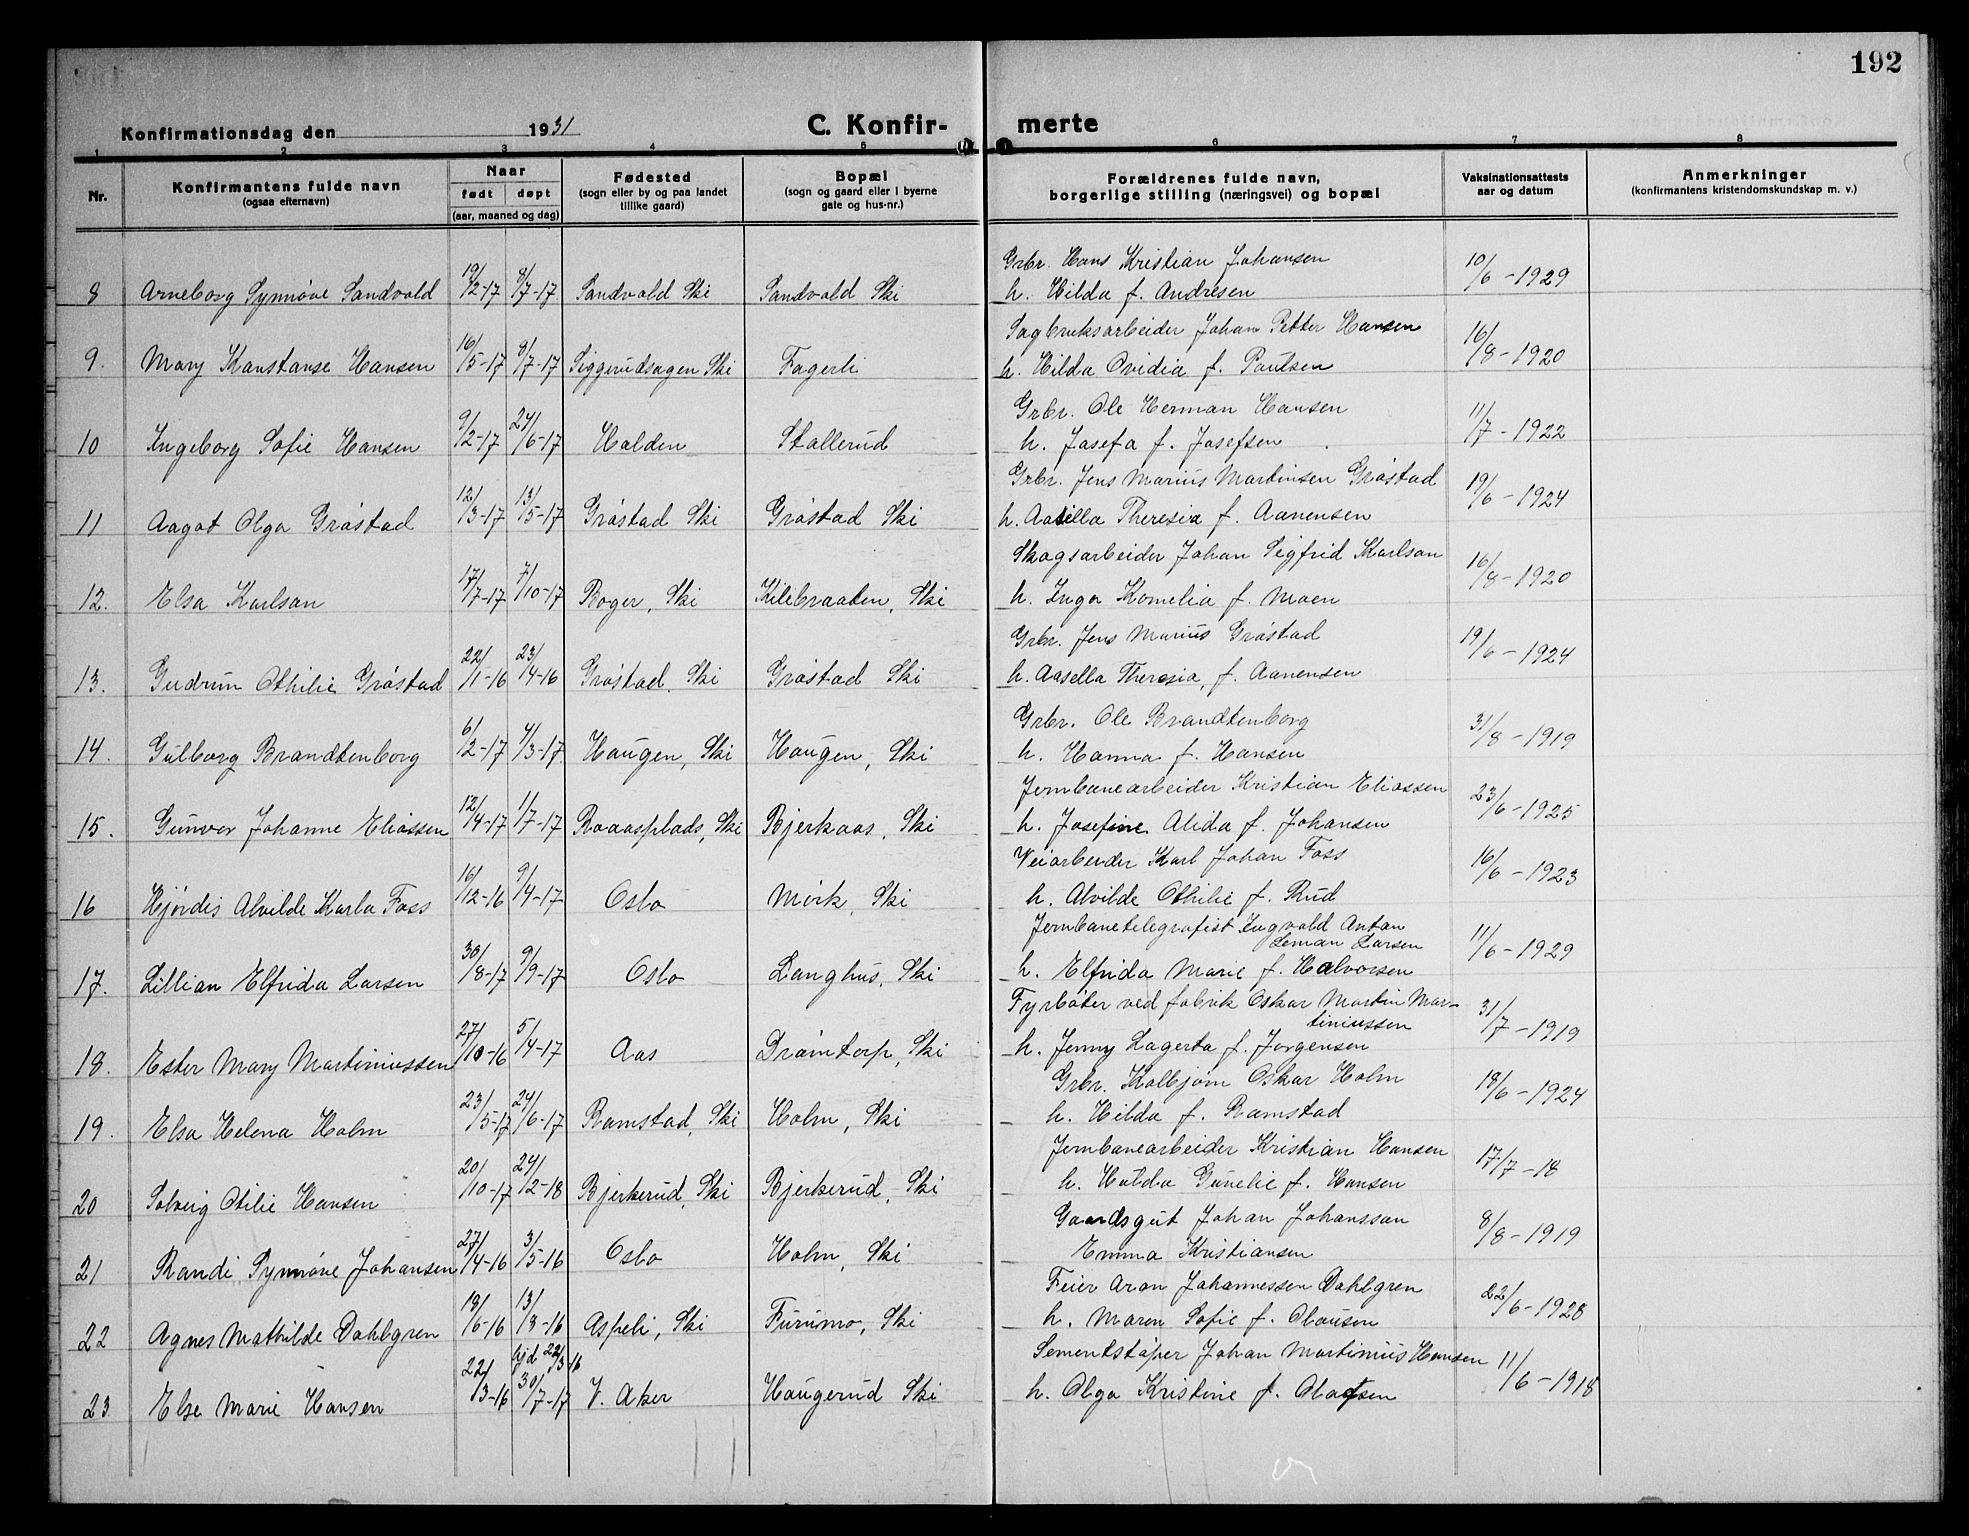 192
Konfirmationsdag den 1931 C. Konfir- merte
1 2 3 4 5 6 7 8
Nr. Konfirmantens fulde navn (ogsaa efternavn) Naar født døpt (aar, maaned og dag) Fødested (sogn eller by og paa landet tillike gaard) Bopæl (sogn og gaard eller i byerne gate og hus-nr.) Forældrenes fulde navn, borgerlige stilling (næringsvei) og bopæl Vaksinationsattests aar og datum Anmerkninger (konfirmantens kristendomskundskap m. v.)
Grbr. Hans Kristian Johansen
8 Arneborg Synnöve Sandvold 19/2-17 8/7-17 Sandvold Ski Sandvold Ski h. Hilda f. Andresen 10/6-1929
Sagbruksarbeider Johan Petter Hansen
9. Mary Konstanse Hansen 16/5-17 8/7-17 Siggerudsagen Ski Fagerli h. Hilda Ovidia f. Paulsen 16/8-1920
Grbr. Ole Herman Hansen
10 Ingeborg Sofie Hansen 9/2-17 24/6-17 Halden Stallerud h. Josefa f. Josefsen 11/7-1922
Grbr. Jens Marius Martinsen Gröstad
11 Aagot Olga Gröstad 12/3-17 13/5-17 Gröstad Ski Gröstad Ski h. Aasella Theresia f. Aanensen 19/6-1924
Skogsarbeider Johan Sigfrid Karlson
12. Elsa Karlson 17/7-17 7/10-17 Roger, Ski Kilebraaten, Ski h. Inga Kornelia f. Moen 16/8-1920
Grbr. Jens Marius Gröstad
13. Gudrun Othilie Gröstad 22/1-16 23/4-16 Gröstad, Ski Gröstad Ski h. Aasella Theresia, f. Aanensen 19/6-1924
Grbr. Ole Brandtenborg
14. Gulborg Brandtenborg 6/2-17 4/3-17 Haugen, Ski Haugen, Ski h. Hanna f. Hansen 31/8-1919
Jernbanearbeider Kristian Eliassen
15. Gunvor Johanne Eliassen 12/4-17 1/7-17 Roaasplads, Ski Bjerkaas, Ski h. Josefine Alida f. Johansen 23/6-1925
Veiarbeider Karl Johan Foss
16 Hjördis Alvilde Karla Foss 16/12-16 9/4-17 Oslo Mörk, Ski h. Alvilde Othilie f. Rud 16/6-1923
Jernbanetelegrafist Ingvald Anton
Leman Larsen
17. Lillian Elfrida Larsen 30/8-17 9/9-17 Oslo Langhus, Ski h. Elfrida Marie f. Halvorsen 11/6-1929
Fyrböter ved fabrik Oskar Martin Mar-
tiniussen
18. Ester Mary Martiniussen 27/10-16 5/4-17 Aas Drömtorp, Ski h. Jenny Lagerta f. Jörgensen 31/7-1919
Grbr. Kolbjörn Oskar Holm
19. Elsa Helena Holm 23/5-17 24/6-17 Ramstad, Ski Holm, Ski h. Hilda f. Ramstad 18/6-1924
Jernbanearbeider Kristian Hansen
20 Solveig Otilie Hansen 20/10-17 24/2-18 Bjerkerud, Ski Bjerkerud, Ski h. Hulda Gunelie f. Hansen 17/7-18
Gaardsgut Johan Johansson
21 Randi Synnöve Johansen 27/4-16 3/5-16 Oslo Holm, Ski Emma Kristiansen 8/8-1919
Feier Aron Johannessen Dahlgren
22 Agnes Mathilde Dahlgren 18/6-16 13/8-16 Aspeli, Ski Furumo, Ski h. Maren Sofie f. Olausen 22/6-1928
hjd 22/3-16 Sementstöper Johan Martinius Hansen
23 Else Marie Hansen 22/3-16 30/7-17 V. Aker Haugerud Ski h. Olga Kristine f. Olafsen 11/6-1918